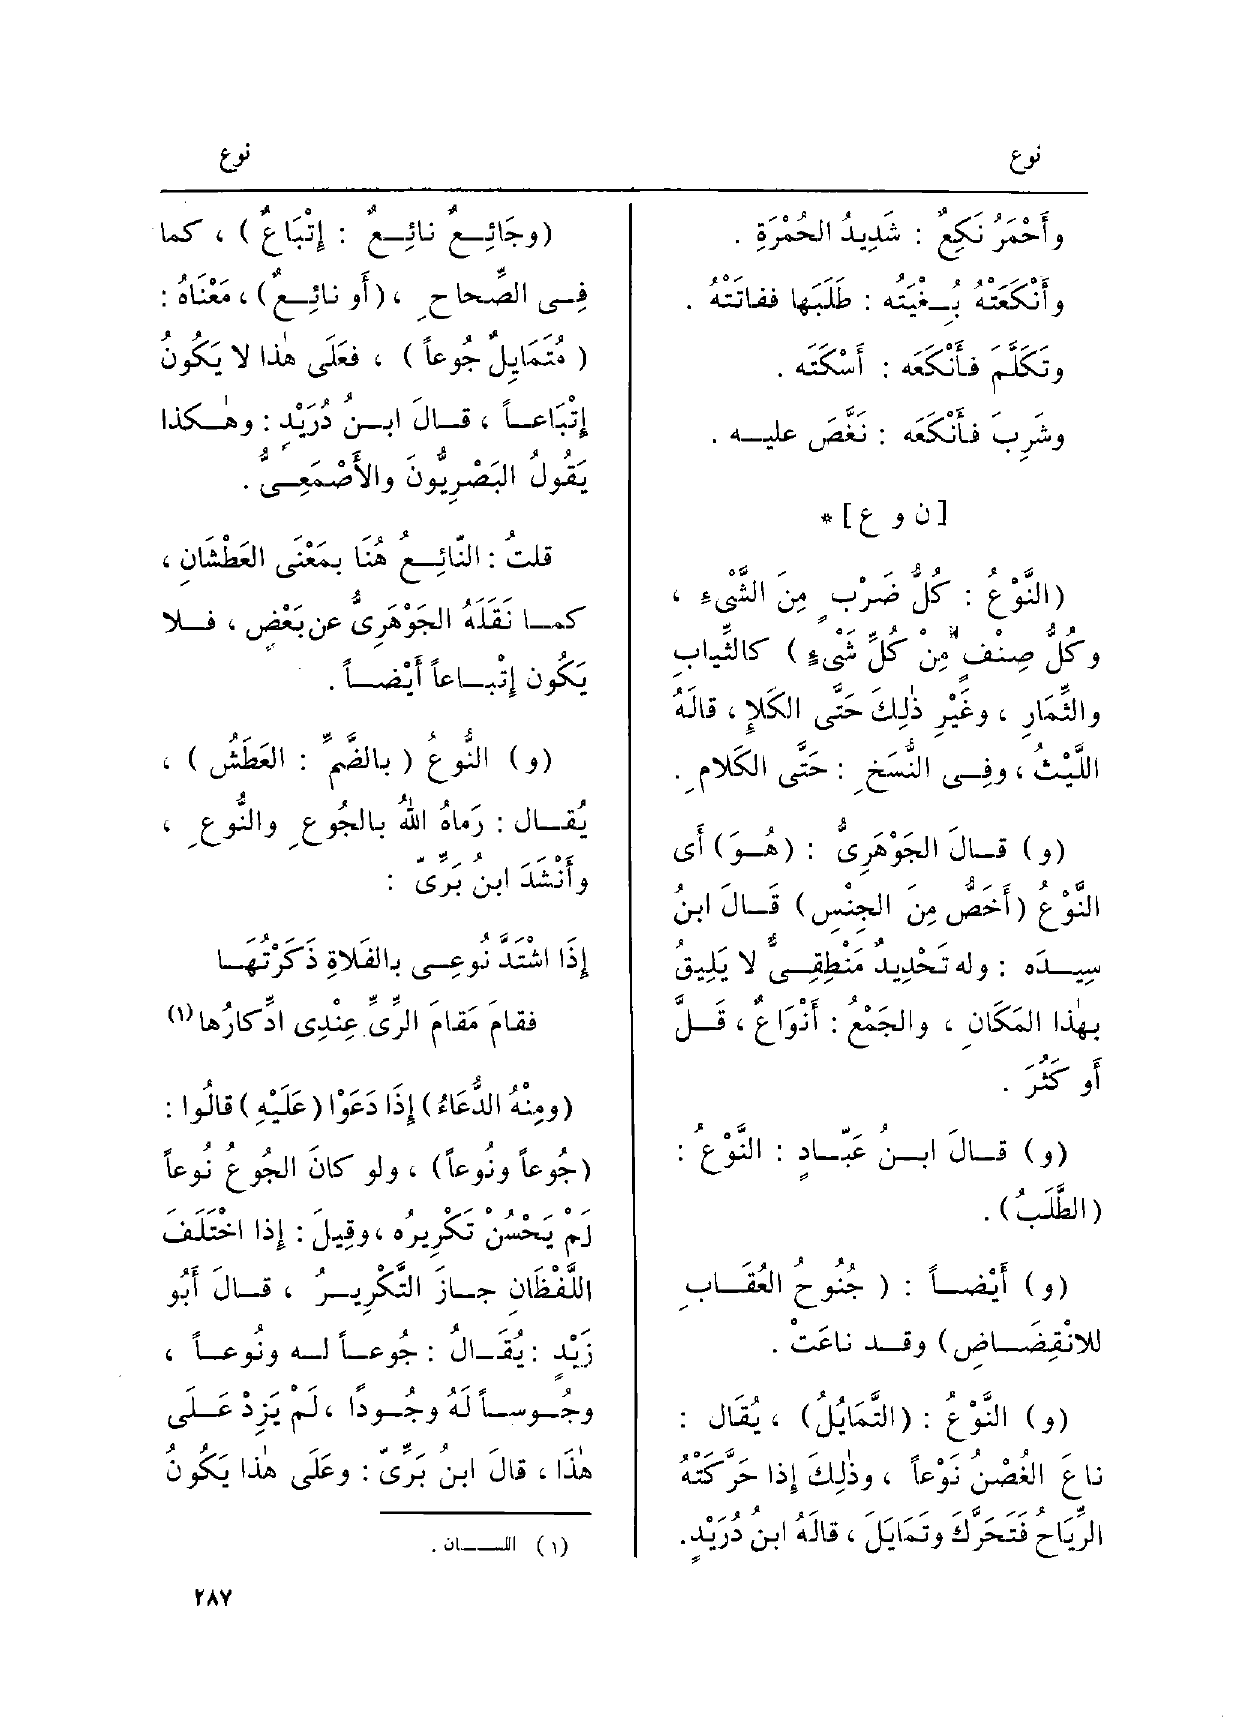 نوع
نوع
وأَحْمَرُ نَكِعٌ : شَدِيدُ الحُمْرَةِ .
وأَنْكَعَتْهُ بُـغْيَتُه : طَلَبَها ففاتَتْهُ .
وتَكَلَّمَ فأَنْكَعَه : أَسْكَتَه .
وشَرِبَ فأَنْكَعَه : نَغَّصَ عليـه .
[ ن و ع ] *
(النَّوْعُ : كلُّ ضَرْبٍ مِنَ الشَّىْءِ ،
وكُلُّ صِنْفٍ مِّن كُلِّ شَىْءٍ ) كالثِّيابِ
والثِّمَارِ ، وغَيْرِ ذٰلِكَ حَتَّى الكَلإِ ، قالَهُ
اللَّيْثُ ، وفـى النُّسَخِ : حَتَّى الكَلامِ .
(و) قـالَ الجَوْهَرِىُّ : (هُـوَ) أَى
النَّوْعُ (أَخَصُّ مِنَ الجِنْسِ) قَـالَ ابنُ
سِيـدَه : وله تَحْدِيدٌ مَنْطِقِـىٌّ لا يَلِيقُ
بهٰذا المَكَانِ ، والجَمْعُ : أَنْوَاعٌ ، قَـلَّ
أَو كَثُرَ .
(و) قـالَ ابـنُ عَبّـادٍ : النَّوْعُ :
(الطَّلَبُ) .
(و) أَيْضـاً : ( جُنُوحُ العُقَـابِ
للانْقِضَـاضِ) وقـد ناعَتْ .
(و) النَّوْعُ : (التَّمَايُلُ) ، يُقَال :
ناعَ الغُصْنُ نَوْعاً ، وذٰلِكَ إذا حَرَّكَتْهُ
الرِّيَاحُ فَتَحَرَّكَ وتَمَايَلَ ، قالَهُ ابنُ دُرَيْدٍ.
(وجَائِـعٌ نائِـعٌ : إتْبَاعٌ ) ، كما
فِـى الصِّحاحِ ، (أَو نائِـعٌ) ، مَعْنَاهُ :
( مُتَمَايِلٌ جُوعاً ) ، فعَلَى هٰذا لا يَكُونُ
إتْبَاعـاً ، قـالَ ابـنُ دُرَيْدٍ : وهٰـكذا
يَقُولُ البَصْرِيُّونَ والأَصْمَعِـىُّ .
قلتُ : النّائِـعُ هُنَا بمَعْنَى العَطْشَانِ ،
كمـا نَقَلَهُ الجَوْهَرِىُّ عن بَعْضٍ ، فـلا
يَكُون إتْبـاعاً أَيْضـاً .
(و) النُّوعُ ( بالضَّمِّ : العَطَشُ ) ،
يُقـال : رَماهُ اللهُ بالجُوعِ والنُّوعِ ،
وأَنْشَدَ ابنُ بَرِّىّ :
إذَا اشْتَدَّ نُوعِـى بالفَلاةِ ذَكَرْتُهَـا
فقامَ مَقامَ الرِّىِّ عِنْدِى ادِّكارُها (١)
(ومِنْهُ الدُّعَاءُ) إذَا دَعَوْا (عَلَيْهِ) قالُوا :
(جُوعاً ونُوعاً) ، ولو كانَ الجُوعُ نُوعاً
لَمْ يَحْسُنْ تَكْرِيرُه ، وقِيلَ : إذا اخْتَلَفَ
اللَّفْظَانِ جـازَ التَّكْرِيـرُ ، قـالَ أَبُو
زَيْدٍ : يُقَـالُ : جُوعـاً لـه ونُوعـاً ،
وجُـوسـاً لَهُ وجُـودًا ، لَمْ يَزِدْ عَـلَى
هٰذَا ، قالَ ابنُ بَرِّىّ : وعَلَى هٰذا يَكُونُ
(١) اللـسان .
٢٨٧